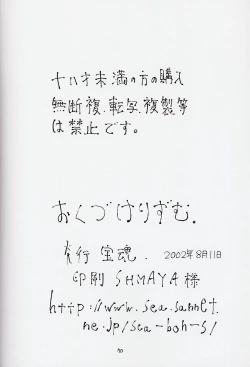 十八才未満の方の購入
無断複、転写、複製等
は禁止です。
おくづけりずむ.
発行 宝魂. 2002年8月11日
印刷 SHMAYA 様
http://www.sea.sannet.
ne.jp/sea-boh-s/